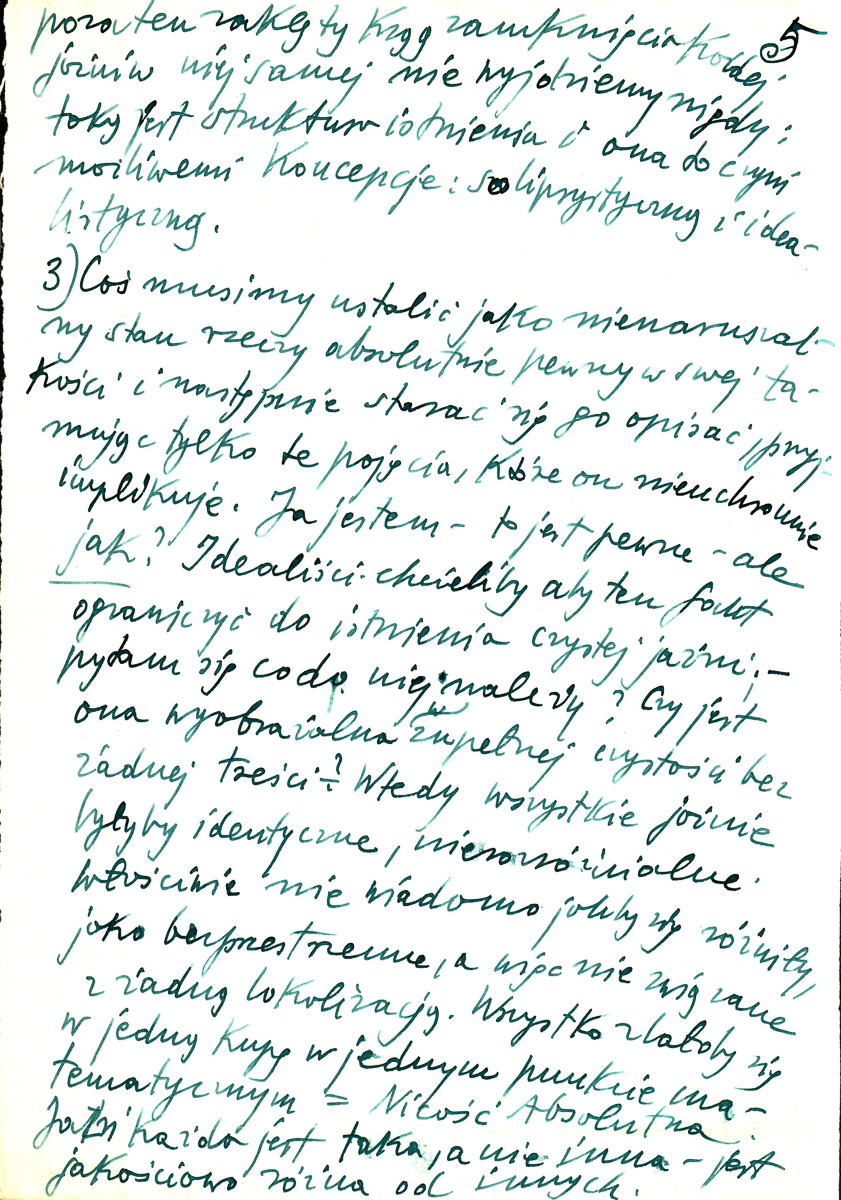 5
poza ten zaklęty krąg zamknięcia każdej
jaźni w niej samej nie wyjdziemy nigdy;
taką jest struktura istnienia i ona to czyni
możliwemi koncepcje: solipsystyczną i idea-
listyczną.
3) Coś musimy ustalić jako nienaruszal-
ny stan rzeczy absolutnie pewny w swej ta-
kości i następnie starać się go opisać, przyj-
mując tylko te pojęcia, które on nieuchronnie
implikuje. Ja jestem – to jest pewne – ale
jak? Idealiści chcieliby aby ten fakt
ograniczyć do istnienia czystej jaźni; –
pytam się co do niej należy? Czy jest
ona wyobrażalna w zupełnej czystości bez
żadnej treści? Wtedy wszystkie jaźnie
byłyby identyczne, nierozróżnialne.
Właściwie nie wiadomo jakby się różniły,
jako bezprzestrzenne, a więc nie związane
z żadną lokalizacją. Wszystko zlałoby się
w jedną kupę w jednym punkcie ma-
tematycznym = Nicość Absolutna.
Jaźń każda jest taka, a nie inna – jest
jakościowo różna od innych.